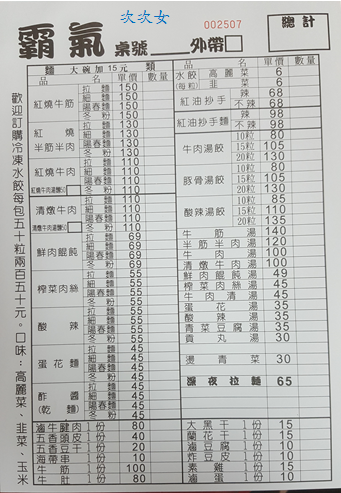 次次女
002507
霸氣 桌號 外帶
總計
麵 大碗加15元 類
品名 單價 數量
紅燒牛筋
拉麵 150
細麵 150
陽春麵 150
冬粉 150
紅燒半筋半肉
拉麵 130
細麵 130
陽春麵 130
冬粉 130
紅燒牛肉
拉麵 110
細麵 110
陽春麵 110
冬粉 110
清燉牛肉
拉麵 110
細麵 110
陽春麵 110
冬粉 110
鮮肉餛飩
拉麵 69
細麵 69
陽春麵 69
冬粉 69
榨菜肉絲
拉麵 55
細麵 55
陽春麵 55
冬粉 55
酸辣
拉麵 55
細麵 55
陽春麵 55
冬粉 55
蛋花麵
拉麵 45
細麵 45
陽春麵 45
冬粉 45
酢醬(乾麵)
拉麵 45
細麵 45
陽春麵 45
滷牛腱肉 1份 80
五香頭皮 1份 40
五香豆干 1份 20
海帶串 1份 10
牛筋 1份 100
牛肚 1份 80
品名 單價 數量
水餃(每粒) 高麗菜 6
韭菜 6
紅油抄手 辣 68
不辣 68
紅油抄手麵 辣 98
不辣 98
牛肉湯餃 10粒 80
15粒 105
20粒 130
豚骨湯餃 10粒 80
15粒 105
20粒 130
酸辣湯餃 10粒 85
15粒 110
20粒 135
牛筋湯 140
半筋半肉湯 120
牛肉湯 100
清燉牛肉湯 100
鮮肉餛飩湯 49
榨菜肉絲湯 45
牛肉清湯 45
蛋花湯 35
酸辣湯 35
青菜豆腐湯 35
貢丸湯 30
燙青菜 30
深夜拉麵 65
大黑干 1份 15
蘭花干 1份 15
滷豆腐 1份 10
炸豆皮 1份 10
素雞 1份 15
滷蛋 1份 10
歡迎訂購冷凍水餃每包五十粒兩百五十元。口味:高麗菜、韭菜、玉米